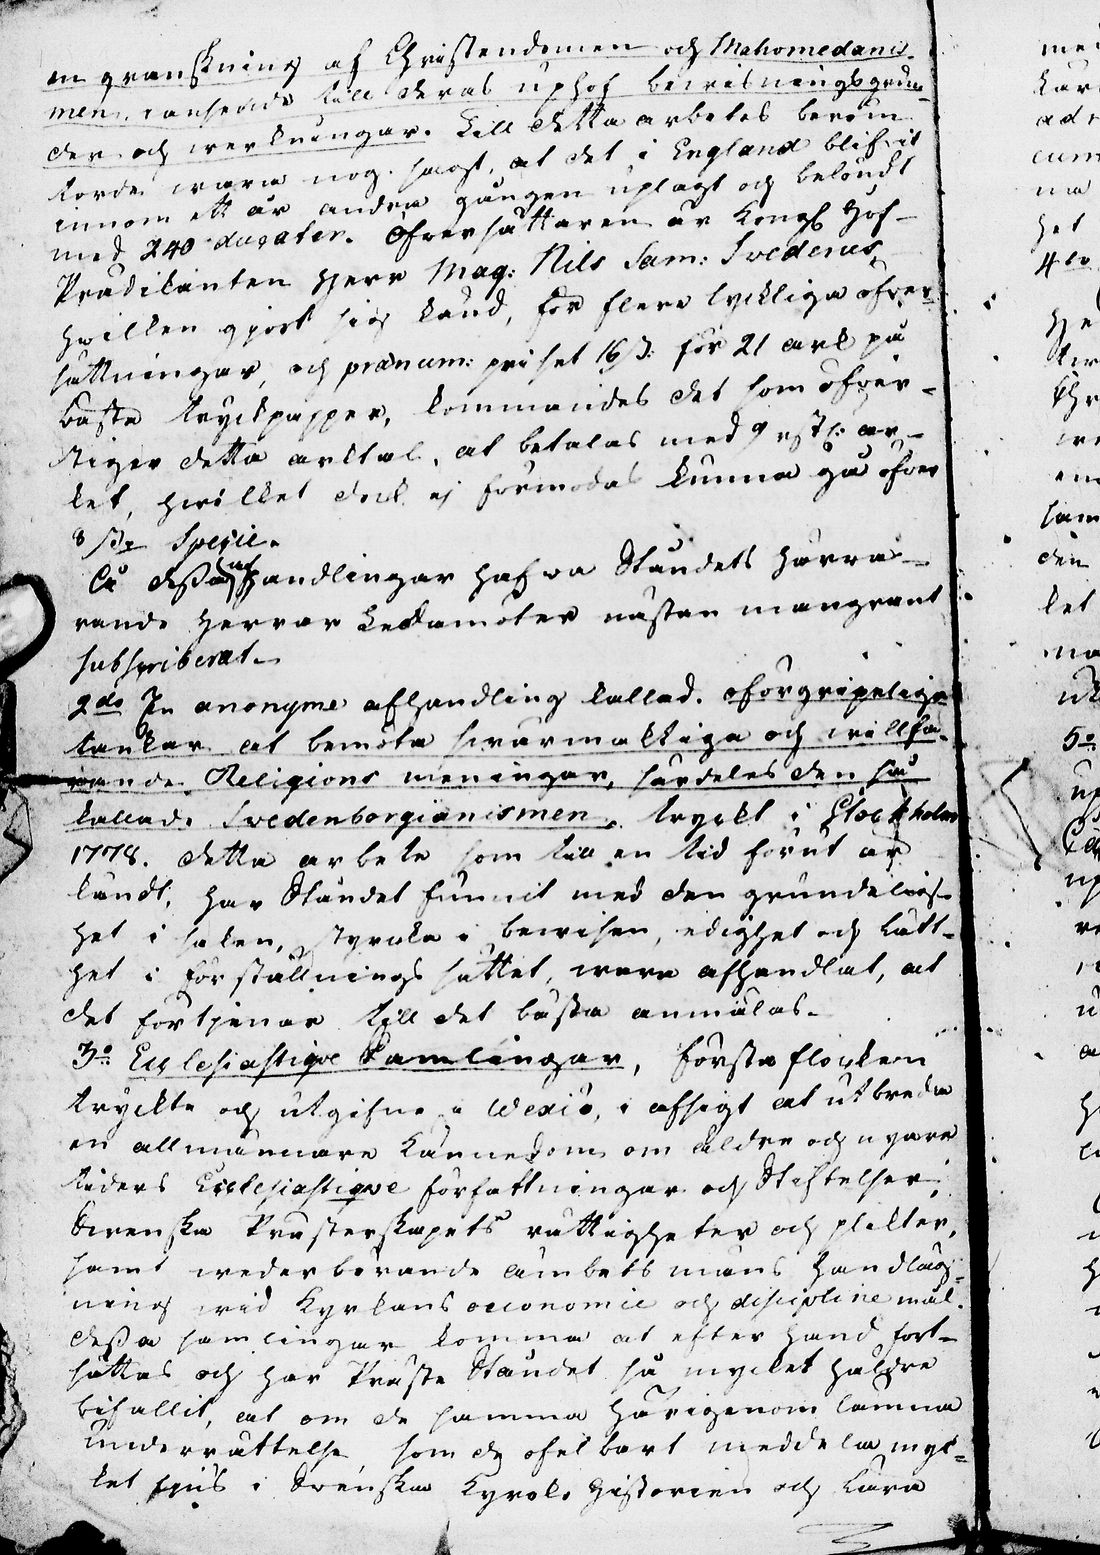 en granskning af Christendomen och Mahomedanis-
men, i anseende till deras uphof bewisningsgrun-
der och werkningar. Till detta arbetes beröm
torde wara nog sagt, at det i England blifvit
innom ett år andra gången uplagt och belöndt
med 240 ducater. Öfversättaren är Kongl Hof-
Prædikanten Herr Mag: Nils Sam: Swederus,
hwilken gjort sig känd, för flere lyckliga öfver
sättningar, och prænum: priset 16 ß: för 21 ark på
bästa tryckpapper, kommandes det som öfver-
stiger detta arktal, at betalas med 9 rst: ar-
ket, hwilket dock ej förmodas kunna gå öfver
8 ß Specie.
Å dessa Handlingar hafva Ståndets Härra-
rande Herrar Ledamöter nästan mangrant
subscriberat.
2do En anonyme afhandling kallad. oförgripelige
tankar at bemöta swärmaktiga och willfa-
rande Religions meningar, särdeles den så
kallade Svedenborgianismen, tryckt i Stockholm
1778. detta arbete som till en tid förut är
kändt, har Ståndet funnit med den grundelig-
het i saken, styrcka i bewisen, redighet och lätt-
het i förställnings sättet, wara afhandlat, at
det förtjenar till det bästa anmälas.
3o Ecclesiastique Samlingar, första flocken
tryckte och utgifne i Wexiö, i afsigt at utbreda
en allmännare kännedom om äldre och nyare
tiders Ecclesiastique författningar och Stiftelser,
Swenska Prästerskapets rättigheter och plikter,
samt wederbörande ämbets mäns handlägg-
ning wid Kyrkans oeconomie och discipline mål.
dessa samlingar komma at efter hand fort-
sättas och har Präste Ståndet så mycket häldre
bifallit, at om de samma härigenom lämna
underrättelse, som de ofelbart meddela myc-
ket ljus i Svenska Kyrko Historien och Lära